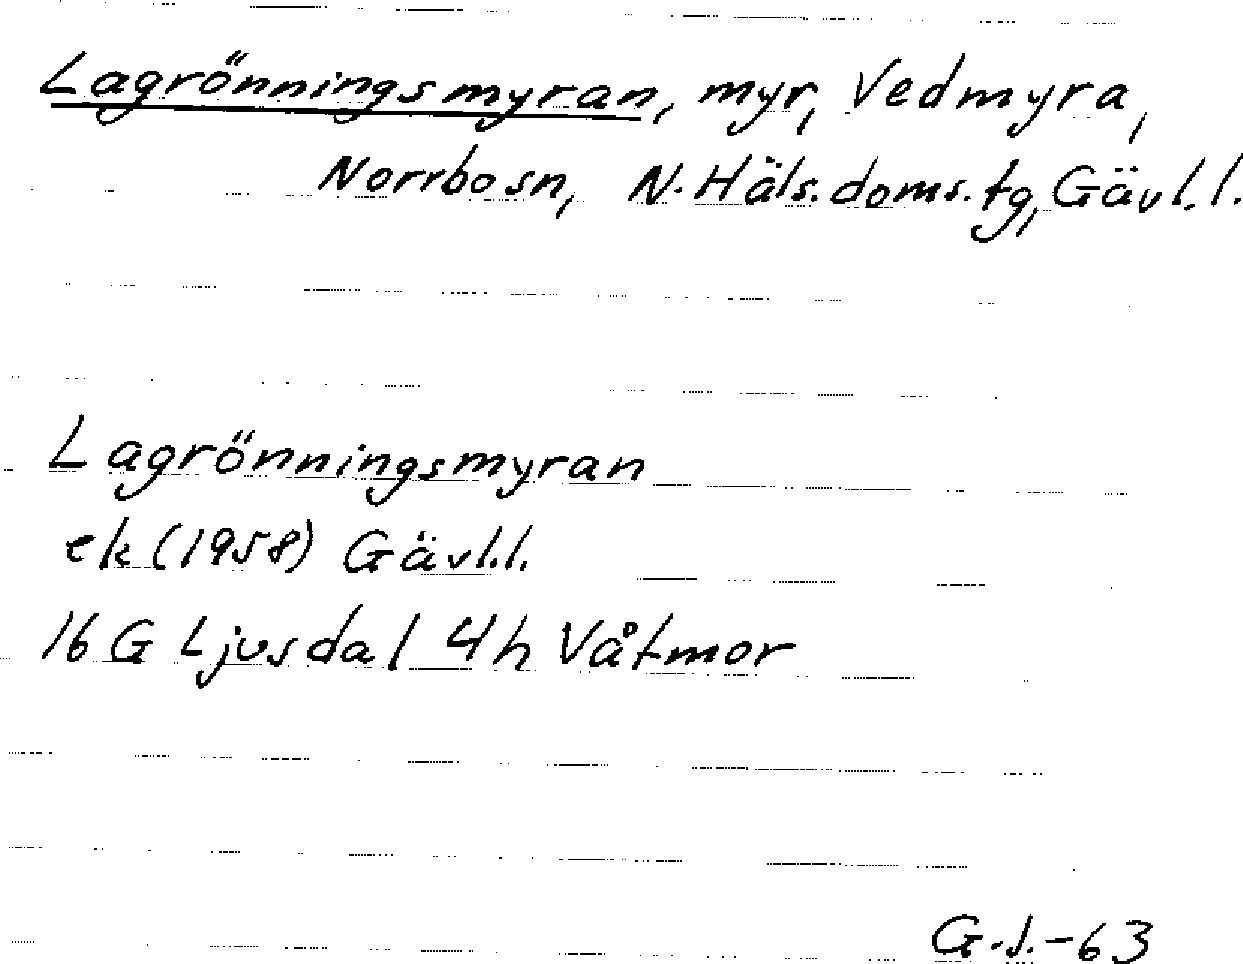 Lagrönningsmyran, myr, Vedmyra,
Norrbo sn, N. Häls. doms. tg, Gävl. l.
Lagrönningsmyran
ek (1958) Gävl. l.
16 G Ljusdal 4h Våtmor
G. J. -63